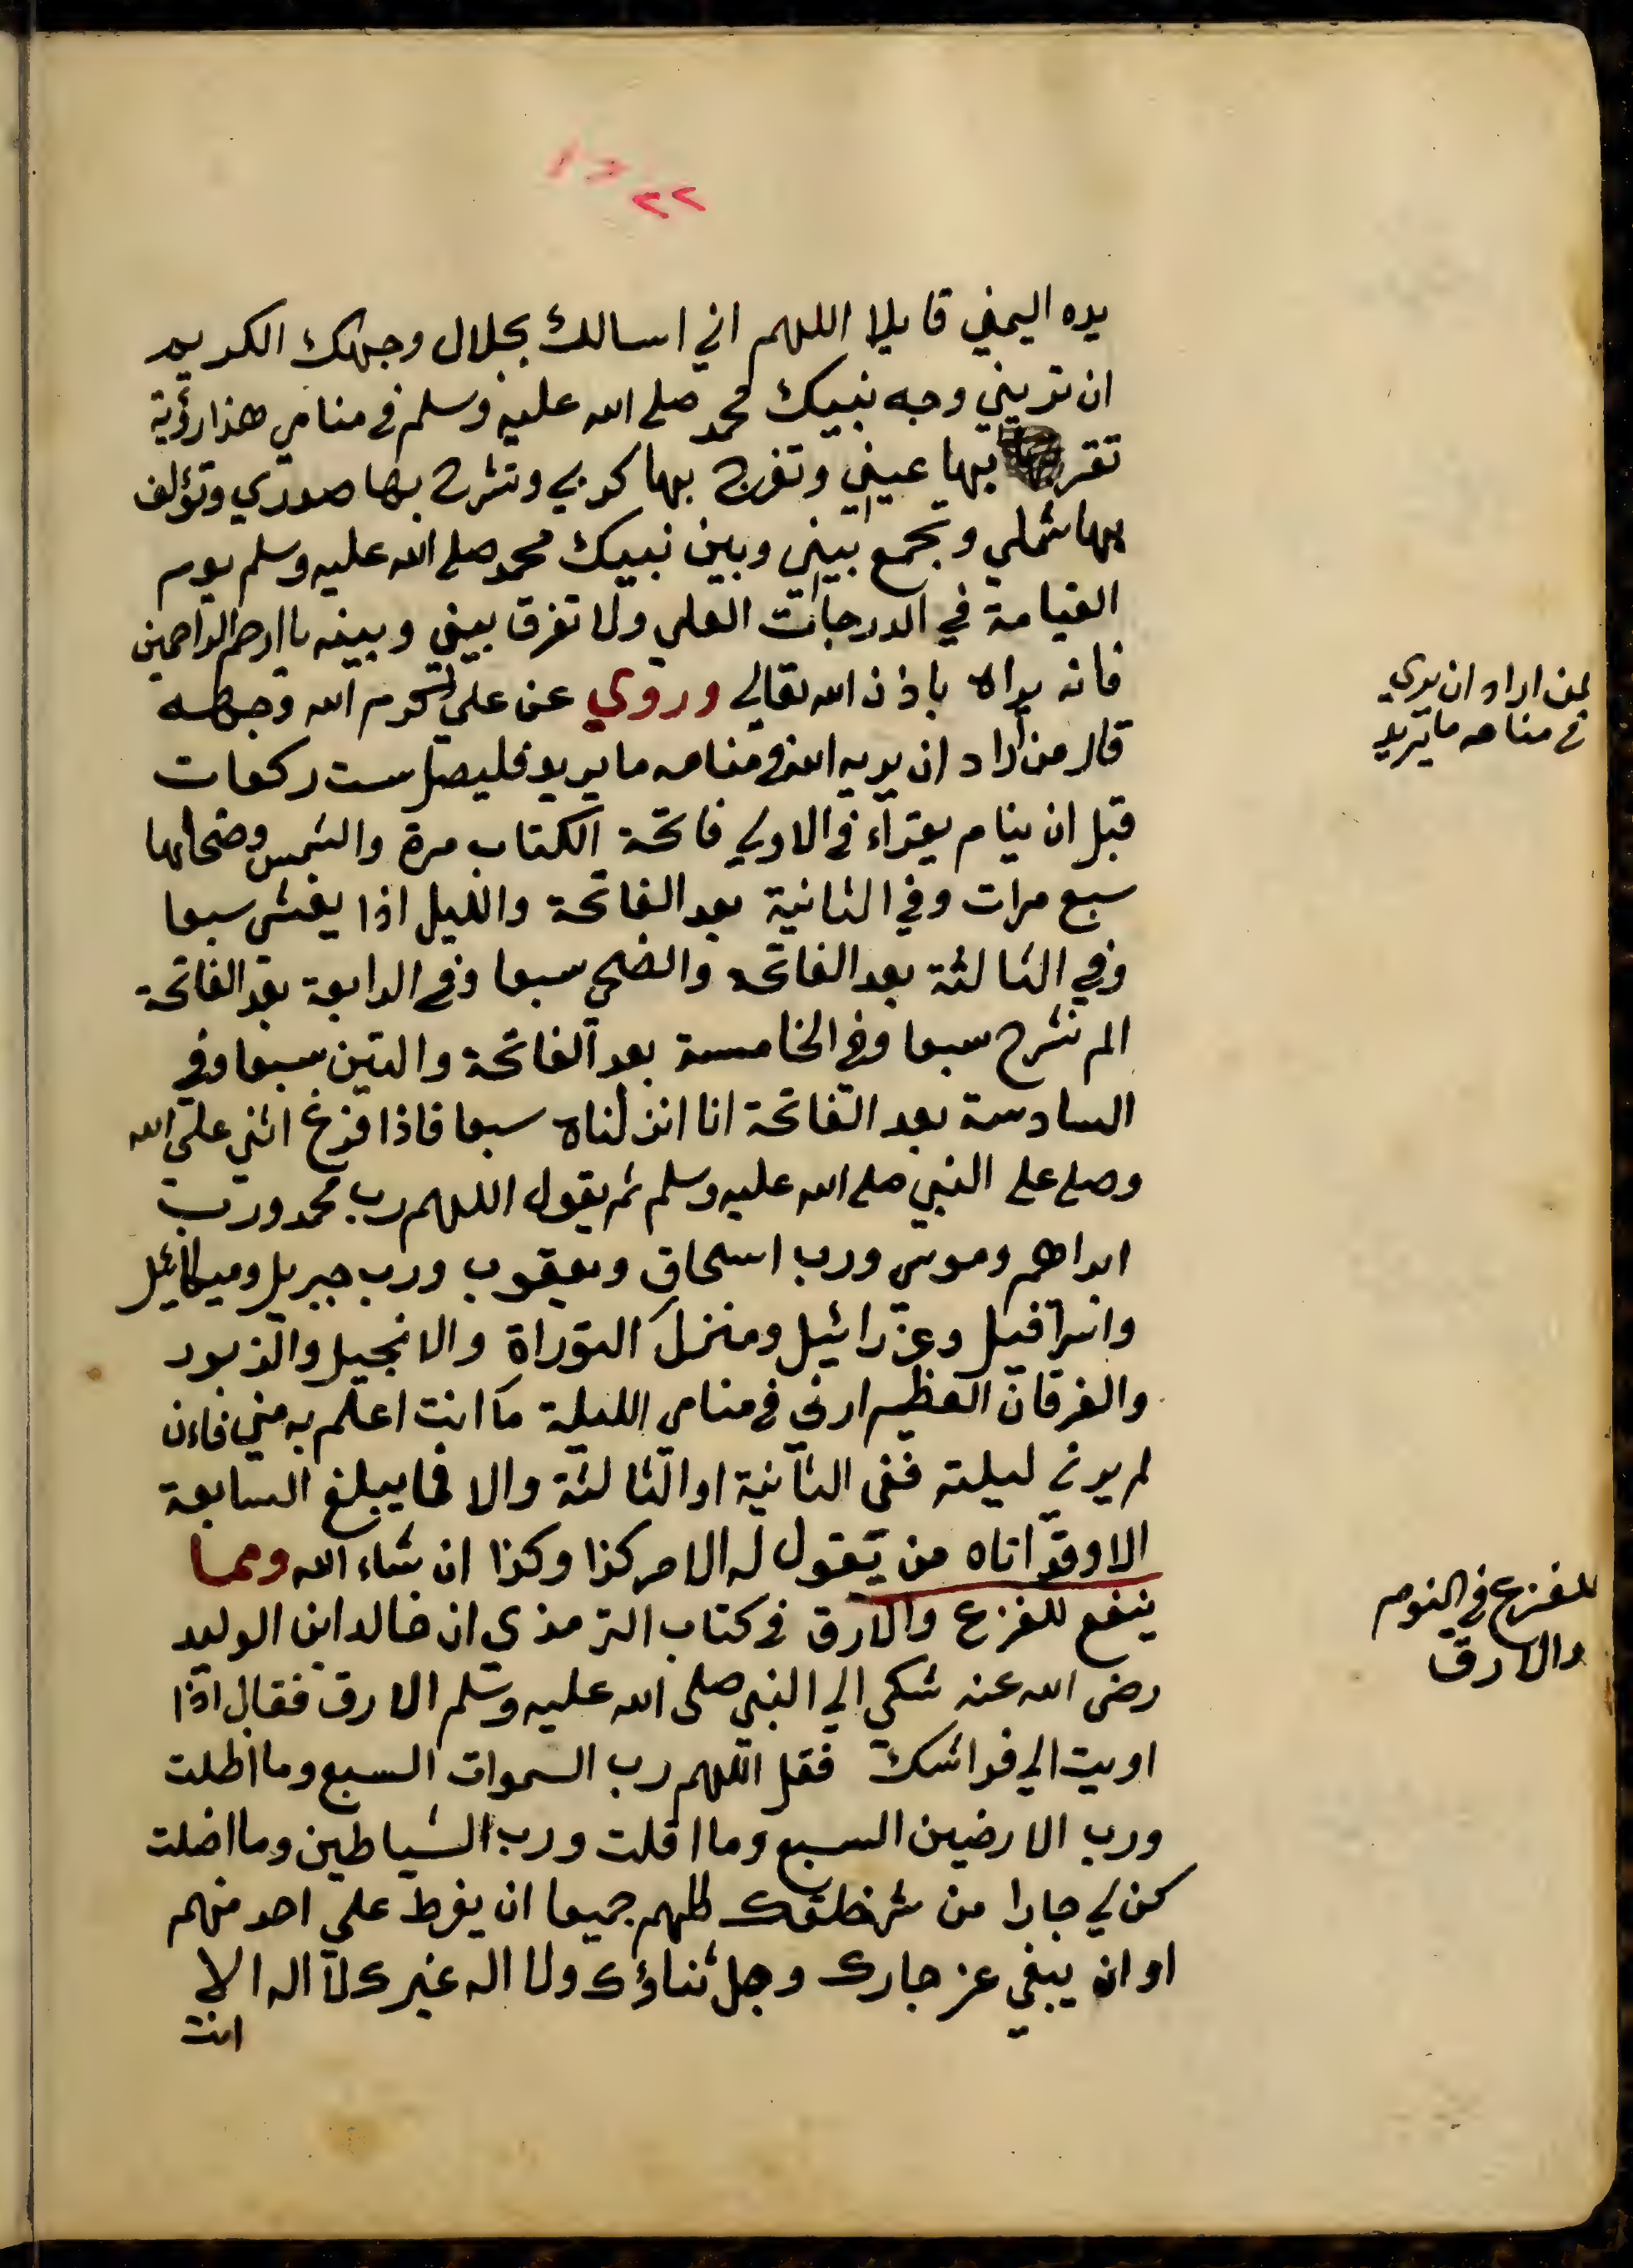 ٢٢
يده اليمني قايلا اللهم اني اسالك بجلال وجهك الكريم
ان تريني وجه نبيك محمد صلي الله عليه وسلم في منامي هذا رؤية
تقر بها عيني وتفرج بها كربي وتشرح بها صدري وتؤلف
بها شملي وتجمع بيني وبين نبيك محمد صلي الله عليه وسلم يوم
القيامة في الدرجات العلي ولا تفرق بيني وبينه يا ارحم الراحمين
فانه يراه باذن الله تعالي وروي عن علي كرم الله وجهه
لمن اراد ان يري
في منامه ما يريد
قال من اراد ان يريه الله في منامه ما يريد فليصل ست ركعات
قبل ان ينام يقراء في الاولي فاتحة الكتاب مرة والشمس وضحاها
سبع مرات وفي الثانية بعد الفاتحة والليل اذا يغشي سبعا
وفي الثالثة بعد الفاتحة والضحي سبعا وفي الرابعة بعد الفاتحة
الم نشرح سبعا وفي الخامسة بعد الفاتحة والتين سبعا وفي
السادسة بعد الفاتحة انا انزلناه سبعا فاذا فرغ اثني علي الله
وصلي علي النبي صلي الله عليه وسلم ثم يقول اللهم رب محمد ورب
ابراهيم وموسي ورب اسحاق ويعقوب ورب جبريل وميكائيل
واسرافيل وعزرائيل ومنزل التوراة والانجيل والزبور
والفرقان العظيم ارني في منامي الليلة ما انت اعلم به مني فاءن
لم ير في ليلته ففي الثانية او الثالثة والا فما يبلغ السابعة
الا وقد اتاه من يقول له الامر كذا وكذا ان شاء الله ومما
للفزع في النوم
والارق
ينفع للفزع والارق في كتاب الترمذي ان خالد ابن الوليد
رضي الله عنه شكي الي النبي صلي الله عليه وسلم الارق فقال اذا
اويت الي فراشك فقل اللهم رب السموات السبع وما اظلت
ورب الارضين السبع وما اقلت ورب الشياطين وما اضلت
كن لي جارا من شر خلقك كلهم جميعا ان يفرط علي احد منهم
او ان يبغي عز جارك وجل ثناؤك ولا اله غيرك لا اله الا
انت